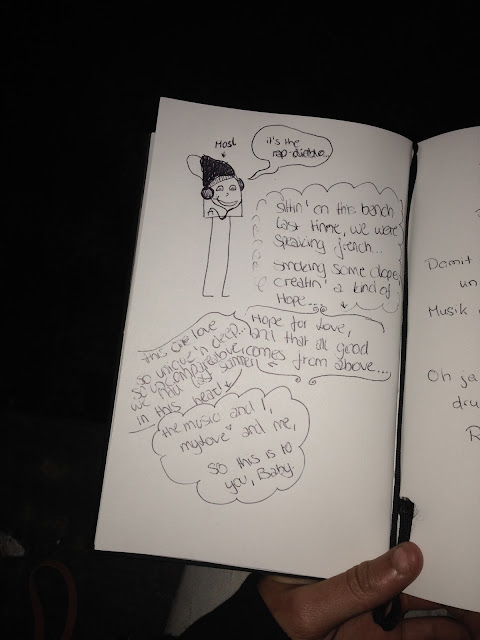 Mosl
it's the
sittin' on this bench
last time, we were
speaking french...
smoking some dope,
creatin' a kind of
Hope...
Hope for love,
and that all good
comes from above...
this one love
so unique 'n deep...
we
last summer
in this heart
the music and I,
my love and me,
so this is to
you, Baby.
Damit
un
Musik
Oh ja
dru
R